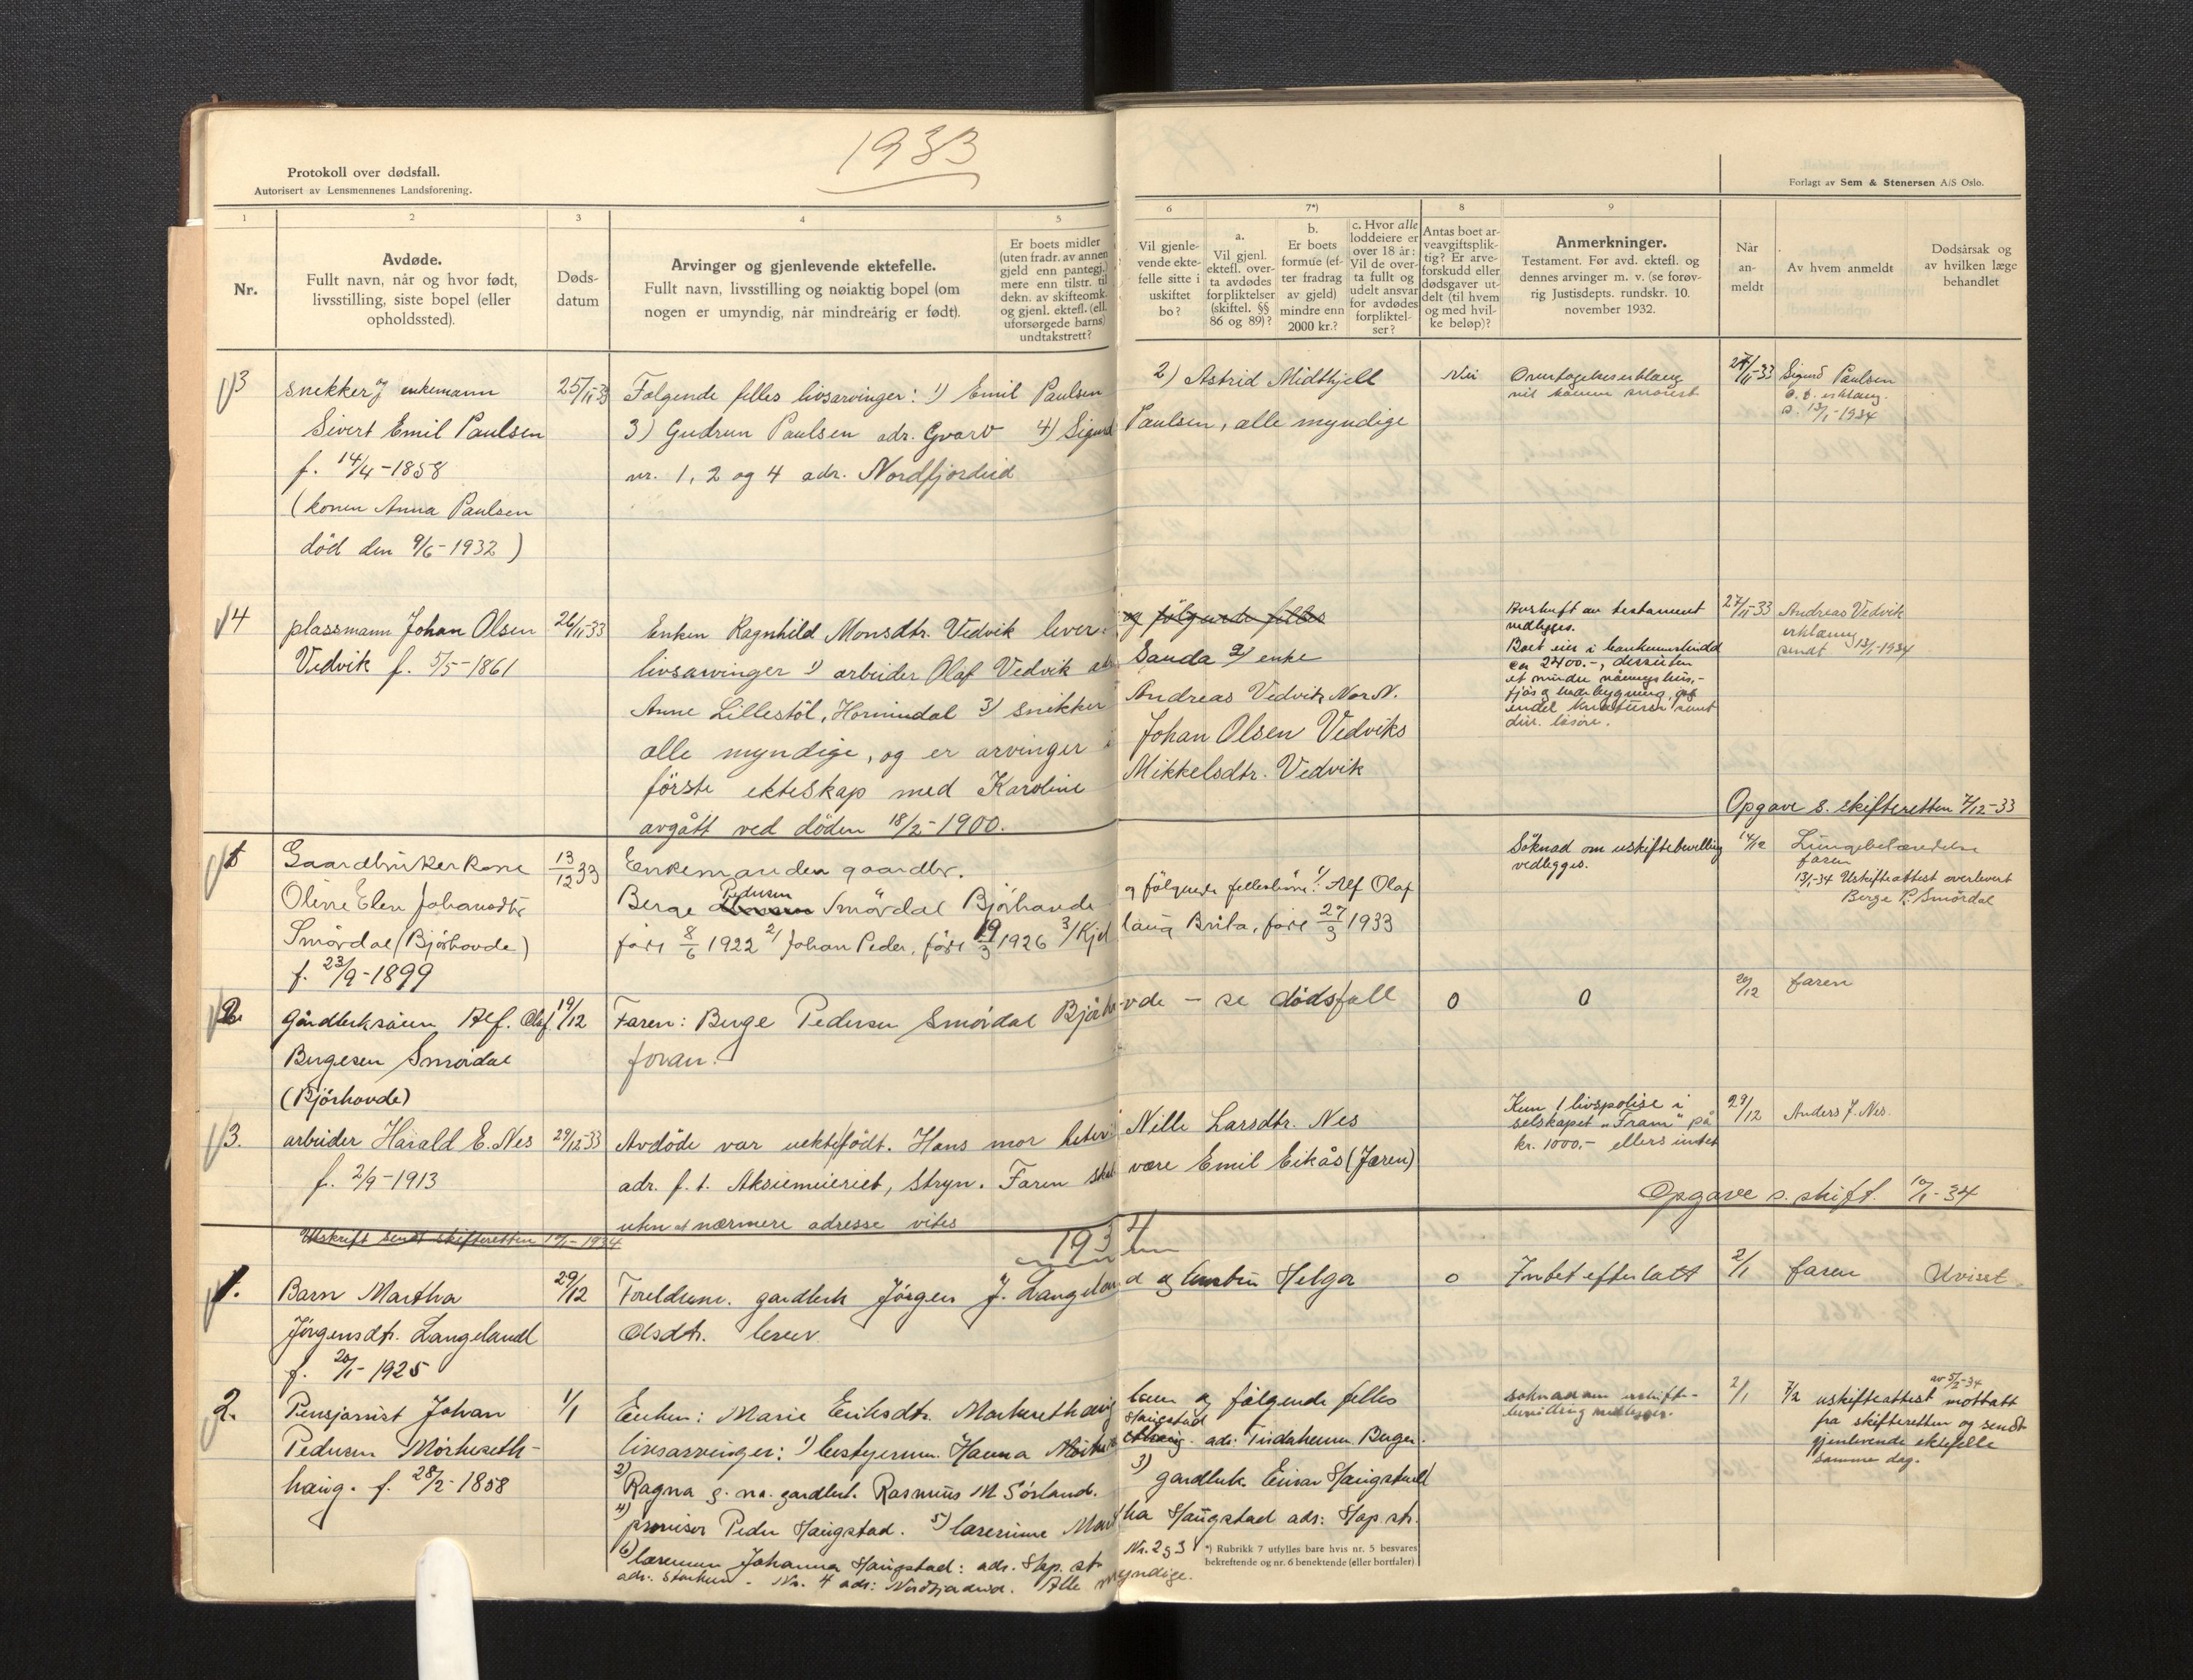 1933
Protokoll over dødsfall.
Autorisert av Lensmennenes Landsforening.
Forlagt av Sem & Stenersen A/S Oslo.
1 2 3 4 5 6 7*) 8 9
Nr.
Avdøde.
Fullt navn, når og hvor født,
livsstilling, siste bopel (eller
opholdssted).
Døds-
datum
Arvinger og gjenlevende ektefelle.
Fullt navn, livsstilling og nøiaktig bopel (om
nogen er umyndig, når mindreårig er født).
Er boets midler
(uten fradr. av annen
gjeld enn pantegj.)
mere enn tilstr. til
dekn. av skifteomk.
og gjenl. ektefl. (ell.
uforsørgede barns)
undtakstrett?
Vil gjenle-
vende ekte-
felle sitte i
uskiftet
bo?
a.
Vil gjenl.
ektefl. over-
ta avdødes
forpliktelser
(skiftel. §§
86 og 89)?
b.
Er boets
formue (ef-
ter fradrag
av gjeld)
mindre enn
2000 kr.?
c. Hvor alle
loddeiere er
over 18 år:
Vil de over-
ta fullt og
udelt ansvar
for avdødes
forpliktel-
ser?
Antas boet ar-
veavgiftsplik-
tig? Er arve-
forskudd eller
dødsgaver ut-
delt (til hvem
og med hvil-
ke beløp)?
Anmerkninger.
Testament. Før avd. ektefl. og
dennes arvinger m. v. (se forøv-
rig Justisdepts. rundskr. 10.
november 1932.
Når
an-
meldt
Av hvem anmeldt
Dødsårsak og
av hvilken læge
behandlet
3 snekker og enkemann 25/11-33 Følgende felles livsarvinger: 1) Emil Paulsen 2) Astrid Midthjell Nei 27/11-33 Sigurd Paulsen
Sivert Emil Paulsen 3) Gudrun Paulsen adr. Gvarv 4) Sigurd Paulsen, alle myndige
13/1-1934
f. 14/4-1858 nr. 1, 2 og 4 adr. Nordfjordeid
(konen Anna Paulsen
død den 9/6-1932)
4 plassmann Johan Olsen 26/11-33 Enken Ragnhild Monsdtr. Vedvik lever: og følgende felles 27/11-33 Andreas Vedvik
Vedvik f. 5/5-1861 livsarvinger 1) arbeider Olaf Vedvik adr Sauda 2) enke
erklæring
sendt 13/1-1934
Anne Lillestöl, Hornindal 3) snikker Andreas Vedvik, Nor N.
alle myndige, og er arvinger i Johan Olsen Vedviks
første ekteskap med Karoline Mikkelsdtr. Vedvik
avgått ved døden 18/2-1900.
Avskrift av testament
vedlegges.
Boet eier i bankinnskudd
ca 2400.-, dessuten
et mindre våningshus,-
Opgave s. skifteretten 7/12-33
1 Gaardbrukerkone 13/12 33 Enkemanden gaardbr. Söknad om uskiftebevilling 14/12
vedlegges.
Oline Elen Johansdtr Berge Pedersen Smördal Björhovde og fölgende fellesbörn: 1) Alf Olaf
faren
13/1-34 Uskifteattest overlevert
Berge P. Smördal
Smördal (Björhovde) 8/6 1922 2) Johan Peder, 19/3 1926 3) Kjellaug Brita, 27/3 1933
f. 23/9-1899
2. Alf. Olaf 19/12 Faren: Berge Pedersen Smördal Björhovde - se dödsfall 0 0 20/12 faren
Bergesen Smördal foran.
(Björhovde)
3. arbeider Harald E. Nes 29/12-33 Avdöde var uekte födt. Hans mor heter: Nille Larsdtr. Nes 29/12 Anders J. Nes
f. 2/9-1913 adr. f. t. Aksiemeieriet, Stryn. Faren skal være Emil Eikås (Jæren)
uten at nærmere adresse vites
Kun 1 livspolise i
selskapet "Fram" på
kr. 1000.- ellers intet
Opgave s. skift. 10/1-34
Utskrift sendt skifteretten 10/1-1934
1934
1. Barn Martha 29/12 Foreldrene. gardbruk Jörgen J. Langeland og hustru Helga 0 Intet efterlatt 2/1 faren Uvisst.
Jörgensdtr. Langeland Olsdtr. lever
f. 20/1-1925
2. Pensjonist Johan 1/1 Enken: Marie Eriksdtr. lever og fölgende felles 2/1
Pedersen livsarvinger: 1) Hanna Haugstad Bergen.
haug. f. 28/2-1858 2) Ragna g. m. gardbr. Rasmus M Sörland. 3) gardbruk. Einar Haugstad
4) provisor Peder Haugstad. 5) lærerinne Martha Haugstad adr: Hop st.
6) Johanna Haugstad: adr. Hop. st Nr. 2 og 3
Nr. 4 adr: Nordfjordeid. Alle myndige.
7/2 uskifteattest av 5/2-34 mottatt
fra skifteretten og sendt
gjenlevende ektefelle
samme dag.
*) Rubrikk 7 utfylles bare hvis nr. 5 besvares
bekreftende og nr. 6 benektende (eller bortfaler)